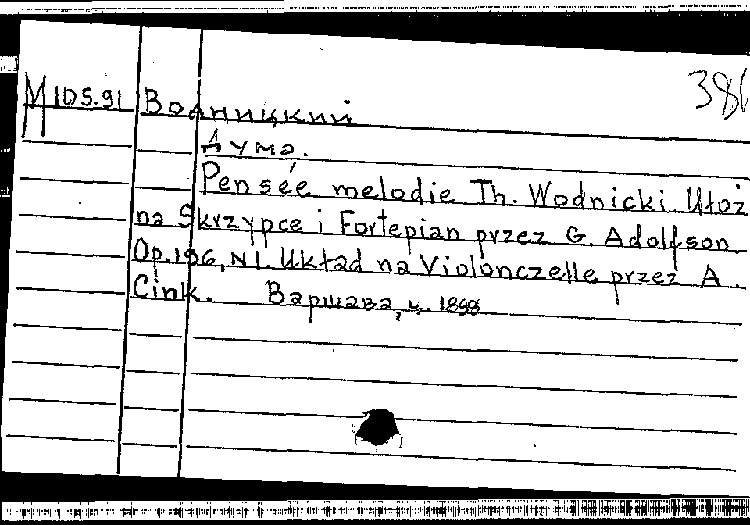 386
M 105.91 Водницкий
Дума.
Pensée melodie Th. Wodnicki. Utoż
na Skrzypce i Fortepian przez G. Adolfson
Op. 196, N1. Układ na Violonczelle przez A.
Cink. Варшава, ц. 1898